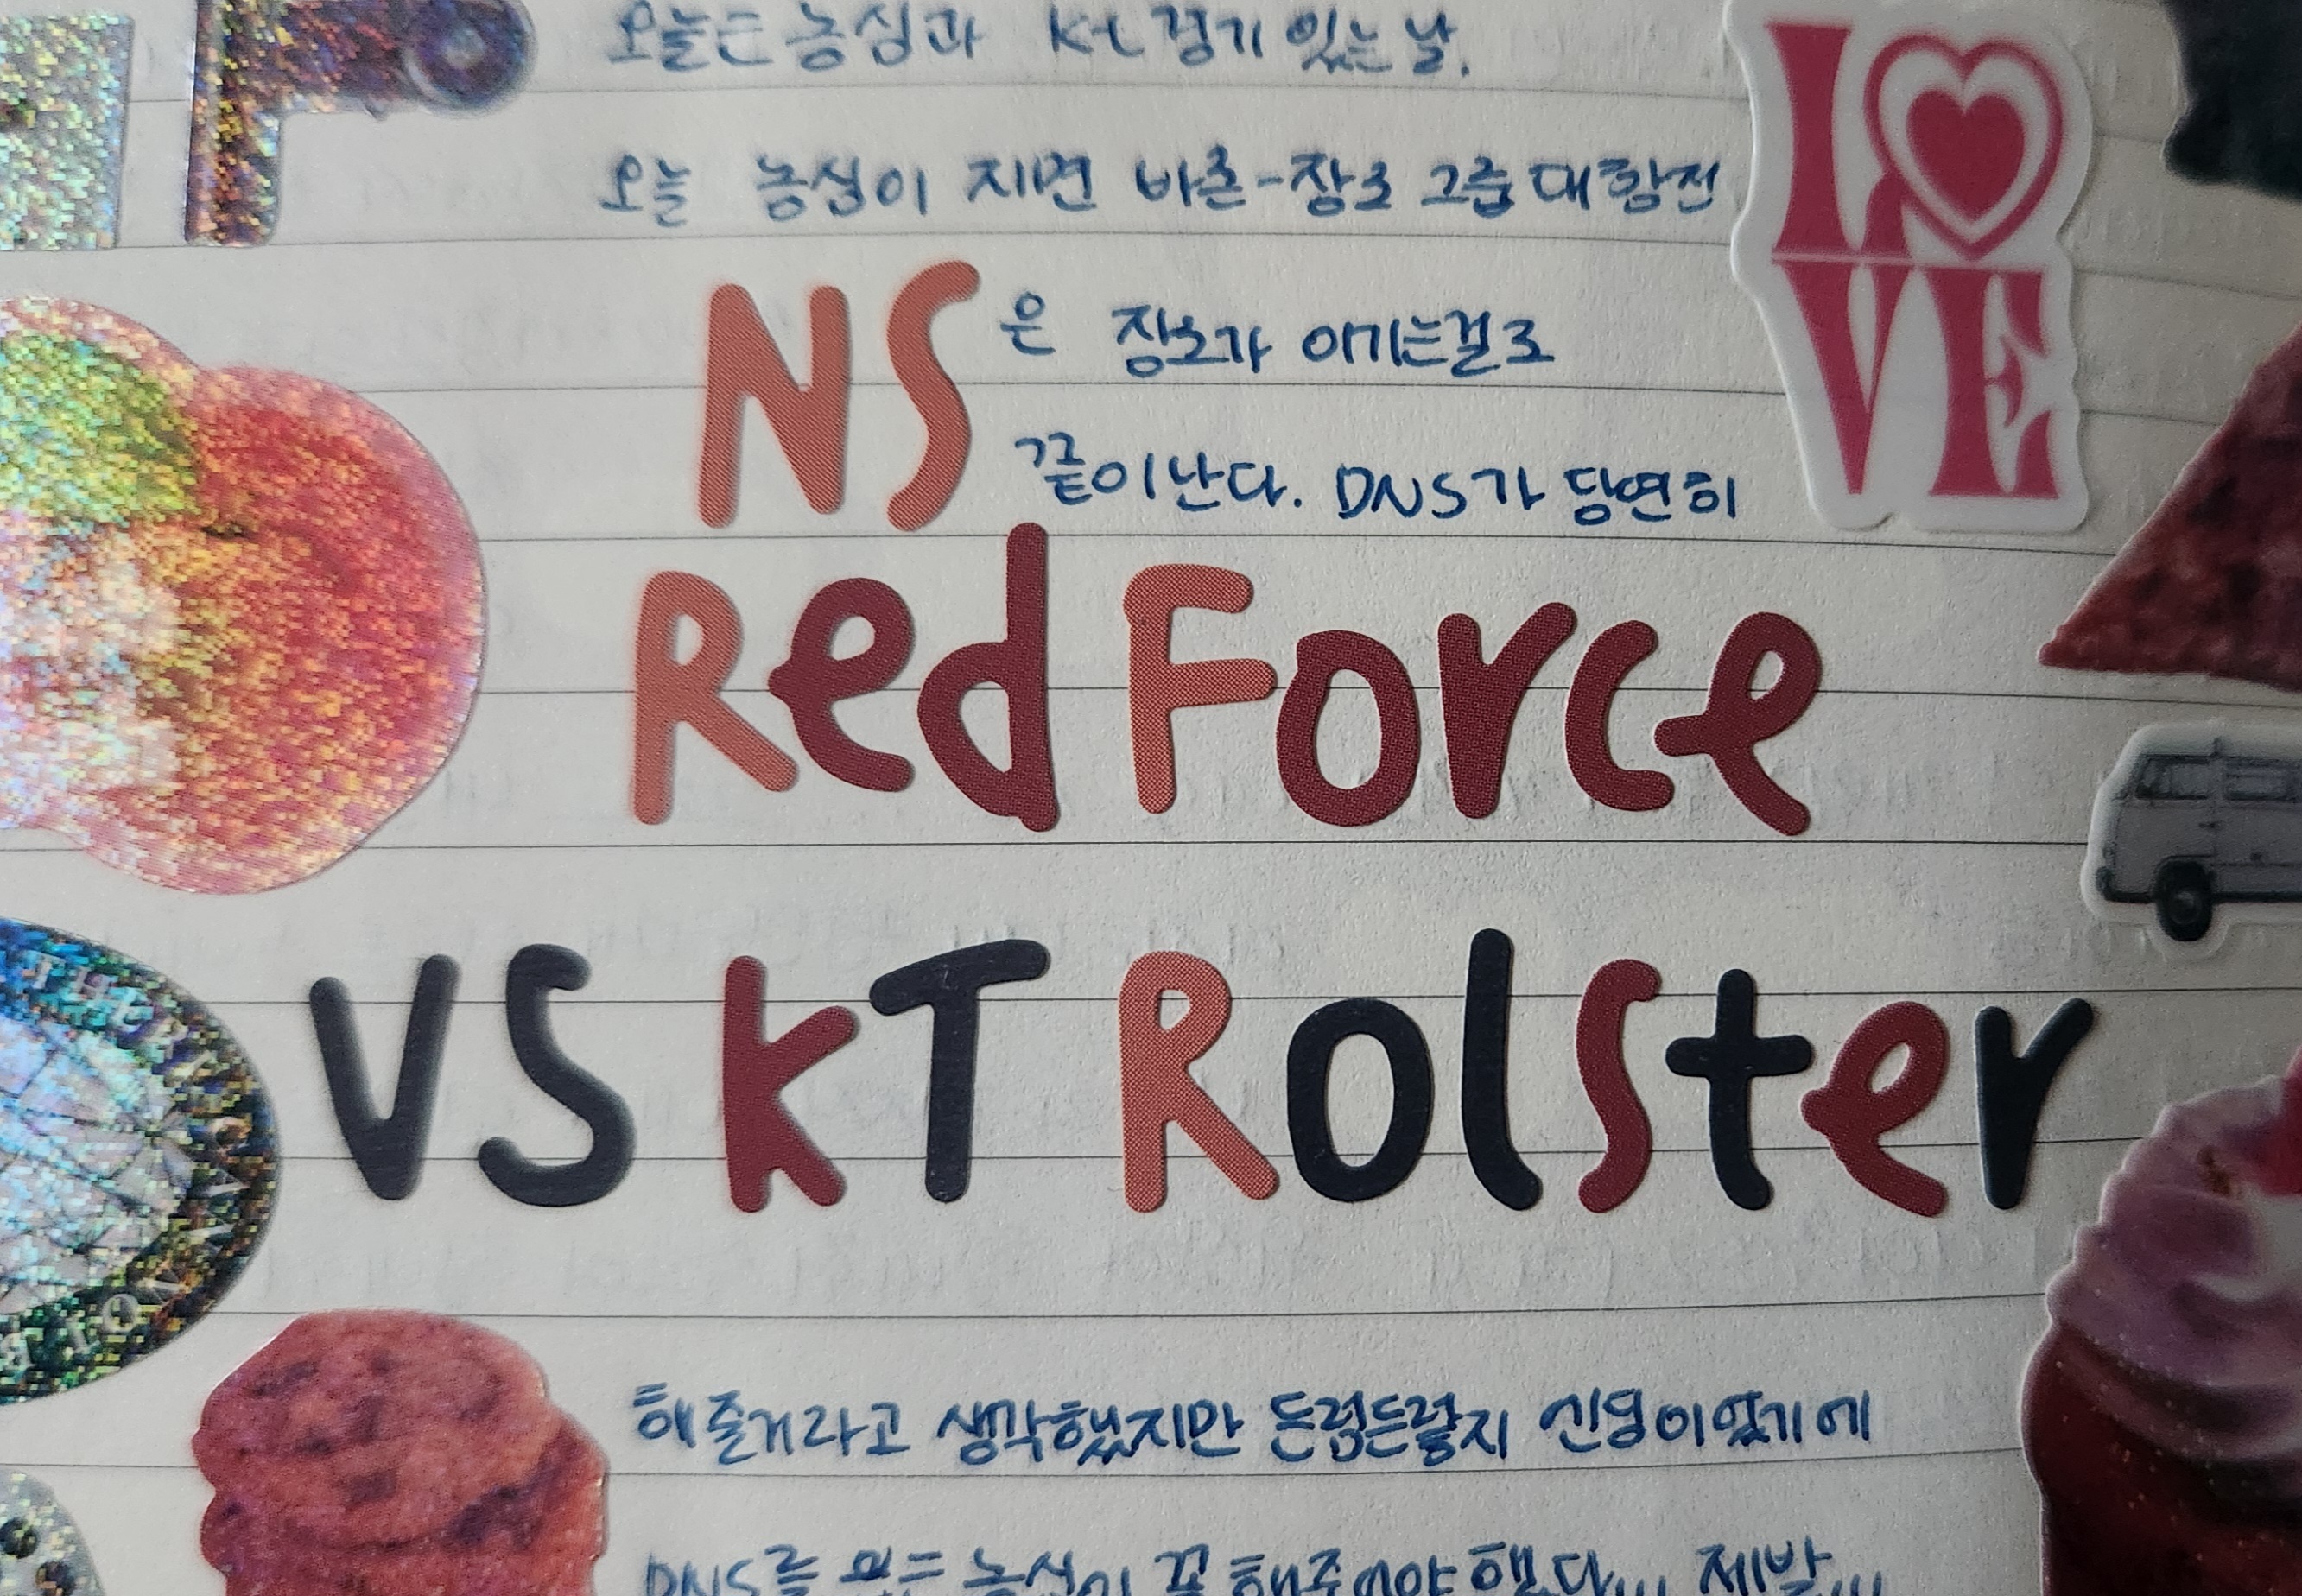 오늘은 농심과 kt 경기 있는 날.
오늘 농심이 지면 바론-장로 그룹대항전
LOVE
NS 은 장로가 이기는걸로
끝이난다. DNS가 당연히
Red Force
VS KT Rolster
해줄거라고 생각했지만 든럼든렇지 신명이었기에
농심이 꼭 해주어야했다... 제발...